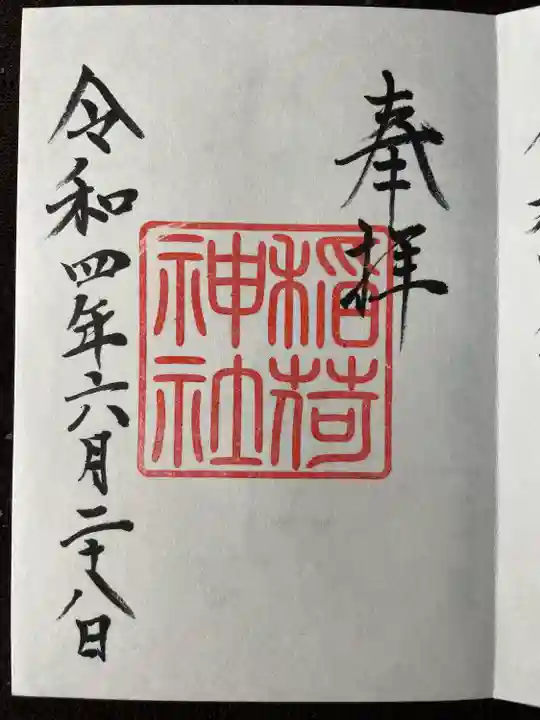 奉拝
稲荷
神社
令和四年六月二十八日